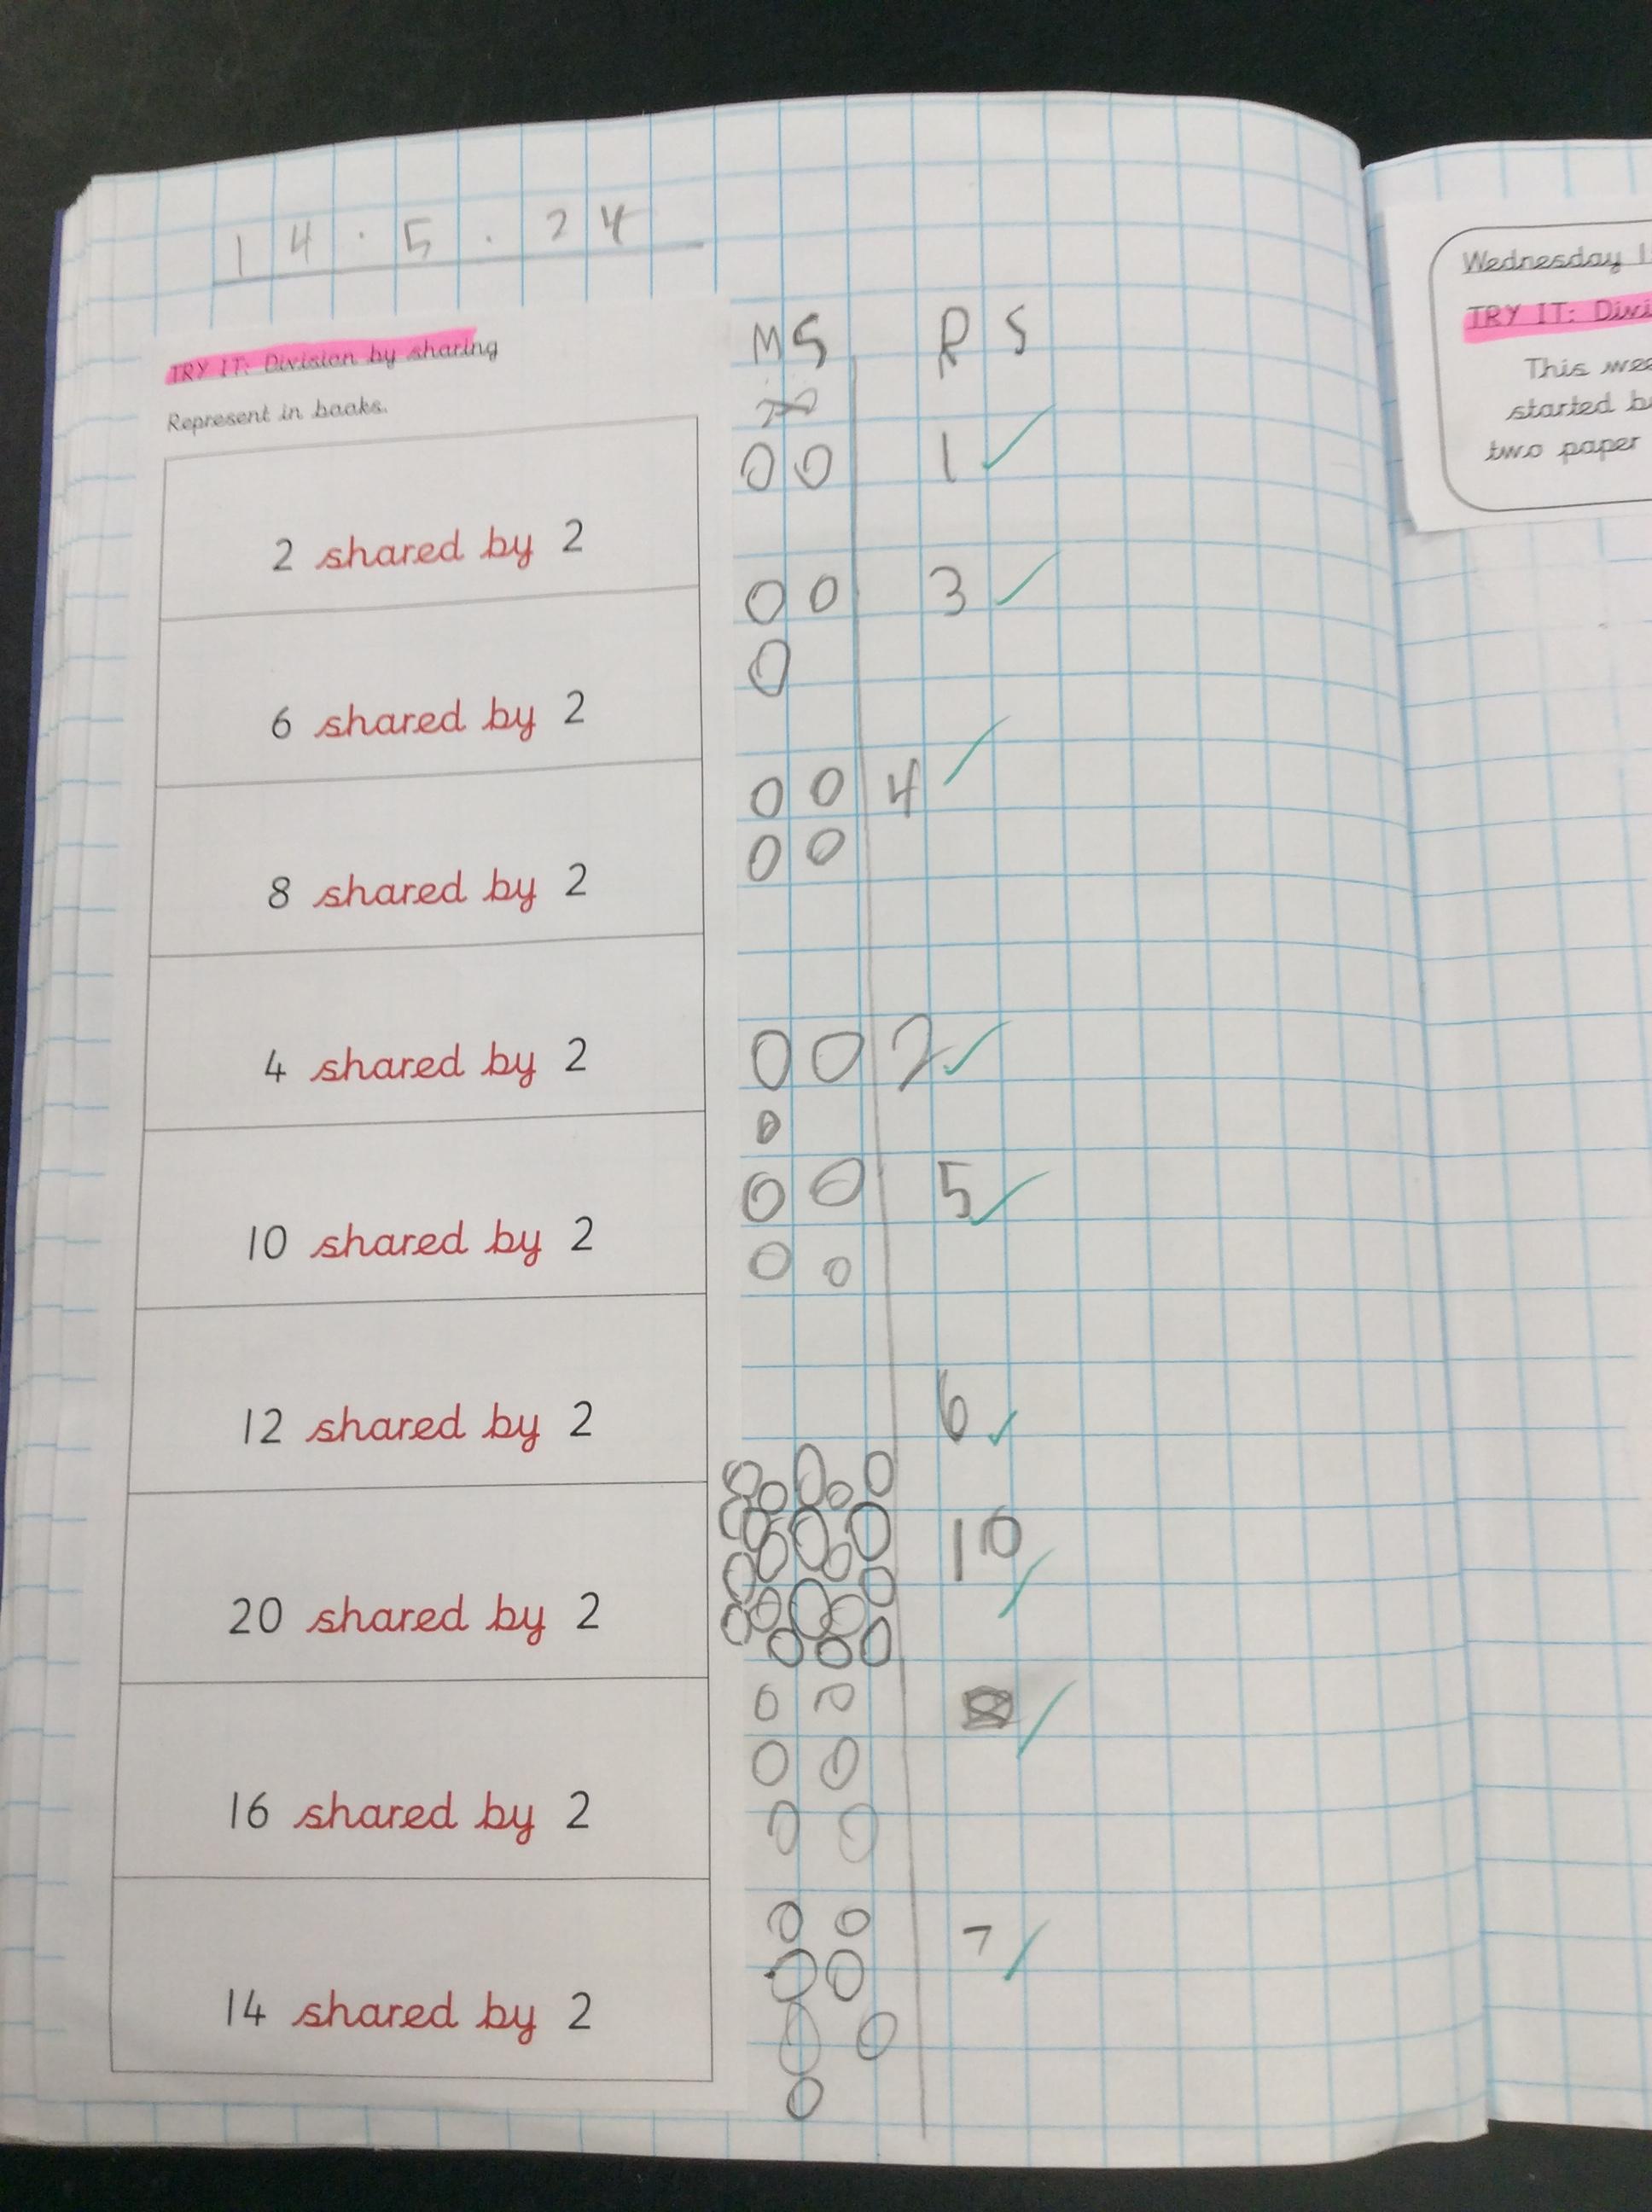 14.5.24
TRY IT: Division by sharing
Represent in books.
MS RS
2 shared by 2
1
6 shared by 2
3
8 shared by 2
4
4 shared by 2
2
10 shared by 2
5
12 shared by 2
6
20 shared by 2
10
16 shared by 2
8
14 shared by 2
7
Wednesday 1
TRY IT: Divi
This wee
started b
two paper